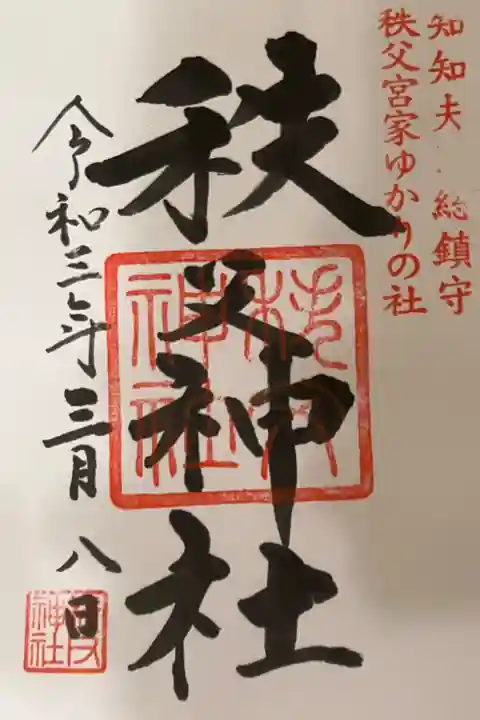 知知夫 総鎮守
秩父宮家ゆかりの社
秩父神社
秩父神社
令和三年三月八日
神社